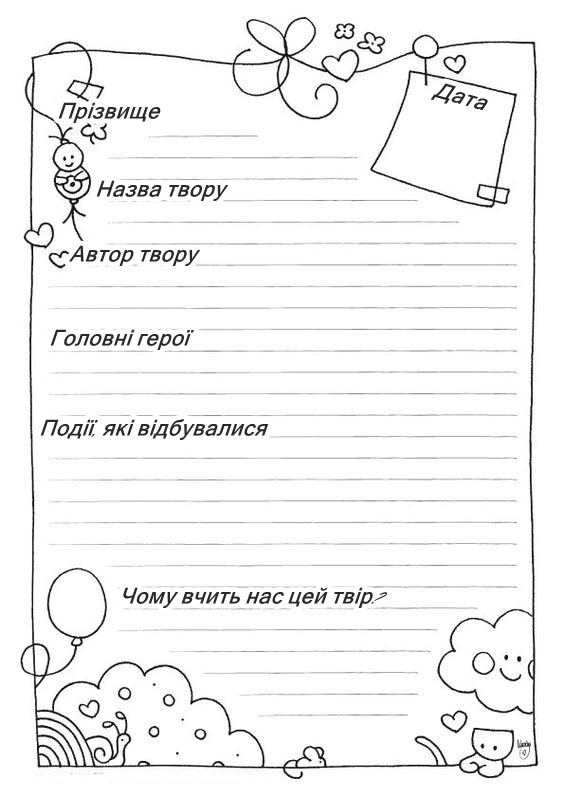 Дата
Прізвище
Назва твору
Автор твору
Головні герої
Події, які відбувалися
Чому вчить нас цей твір?